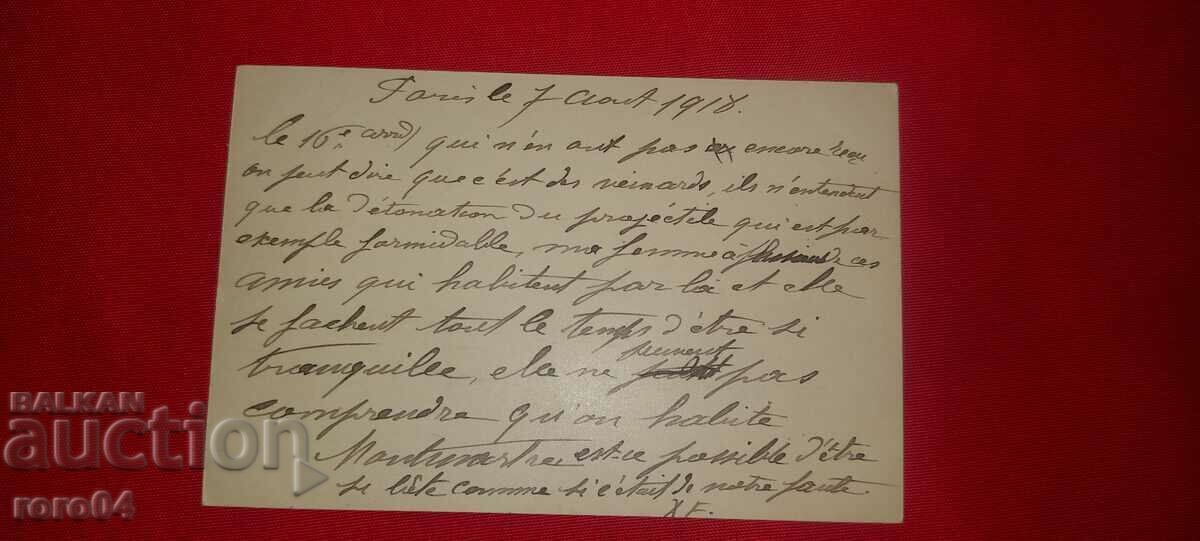 Paris le 7 Aout 1918.
le 16e arrd) qui n'en ont pas encore reçu
on peut dire que c'est des veinards, ils n'entendent
que la détonation du projéctile qui est par
exemple formidable, ma femme à plusieurs de ces
amies qui habitent par là et elle
se fachent tout le temps d'être si
tranquille, elle ne peuvent pas
comprendre qu'on habite
Montmartre, est-ce possible d'être
si bête comme si c'était de notre faute.
BALKAN
auction
roro04